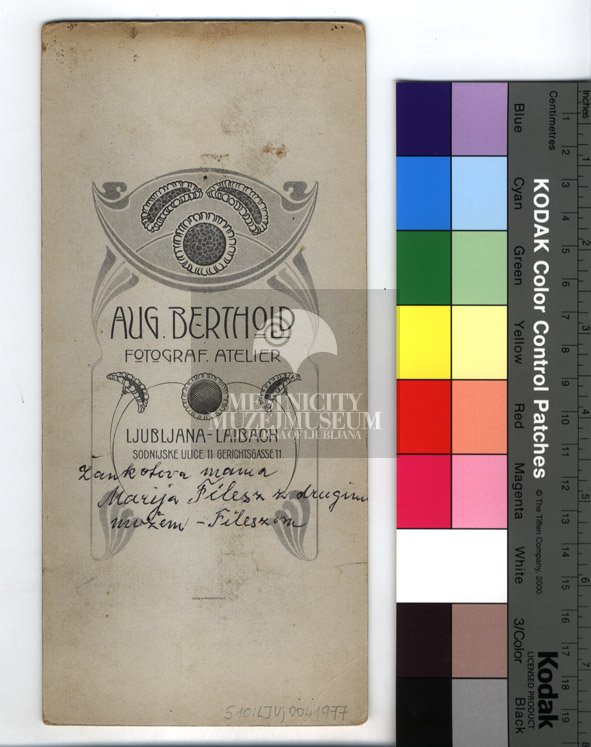 AUG. BERTHOLD
FOTOGRAF. ATELIER
LJUBLJANA-LAIBACH
SODNIJSKE ULICE 11 GERICHTSGASSE 11
Žankotova mama
Marija Filesz z drugim
možem - Fileszom
510:LJU;0041977
MESTNI CITY
MUZEJ MUSEUM
OF LJUBLJANA
KODAK Color Control Patches
© The Tiffen Company, 2000
Kodak
LICENSED PRODUCT
Blue
Cyan
Green
Yellow
Red
Magenta
White
3/Color
Black
Centimetres
1 2 3 4 5 6 7 8 9 10 11 12 13 14 15 16 17 18 19
inches
1 2 3 4 5 6 7